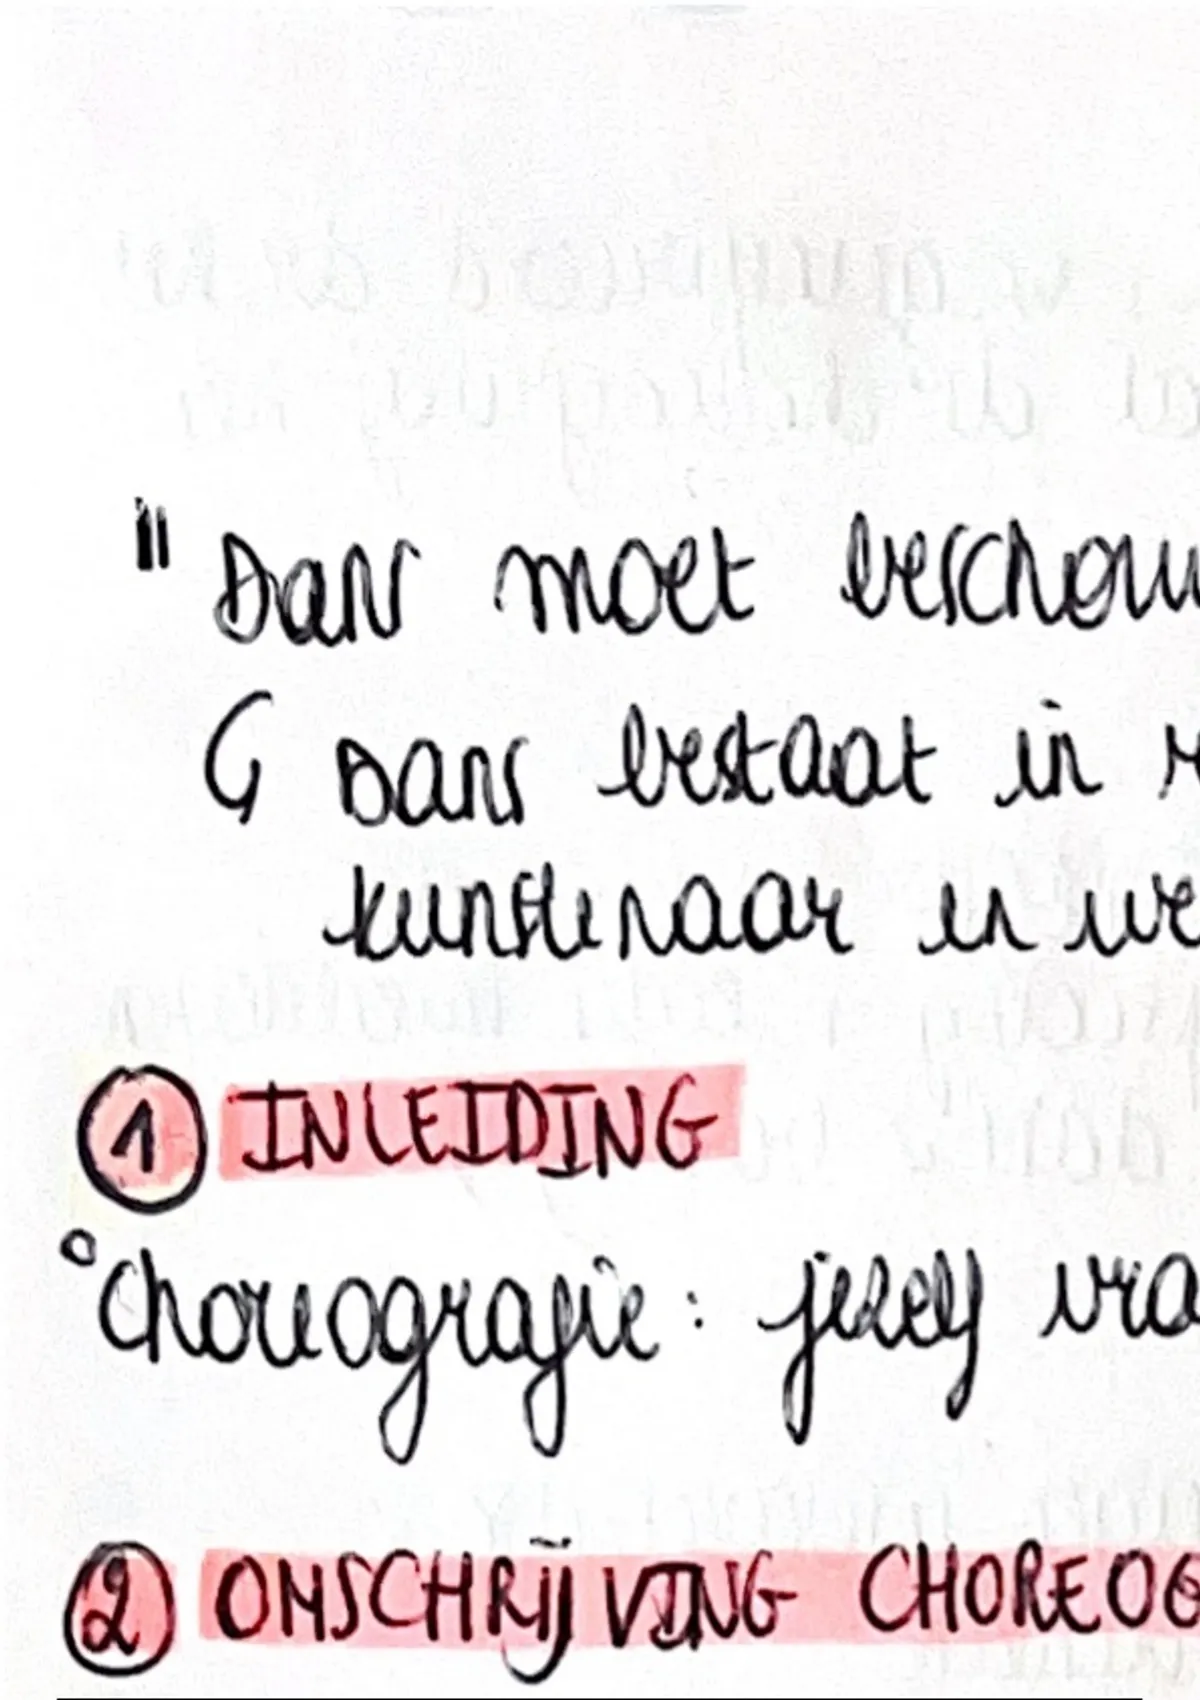 " Dans moet beschouw
↳ Dans bestaat in r
kunstenaar en we
① INLEIDING
°Choreografie: jezelf vra
② OMSCHRIJVING CHOREOG